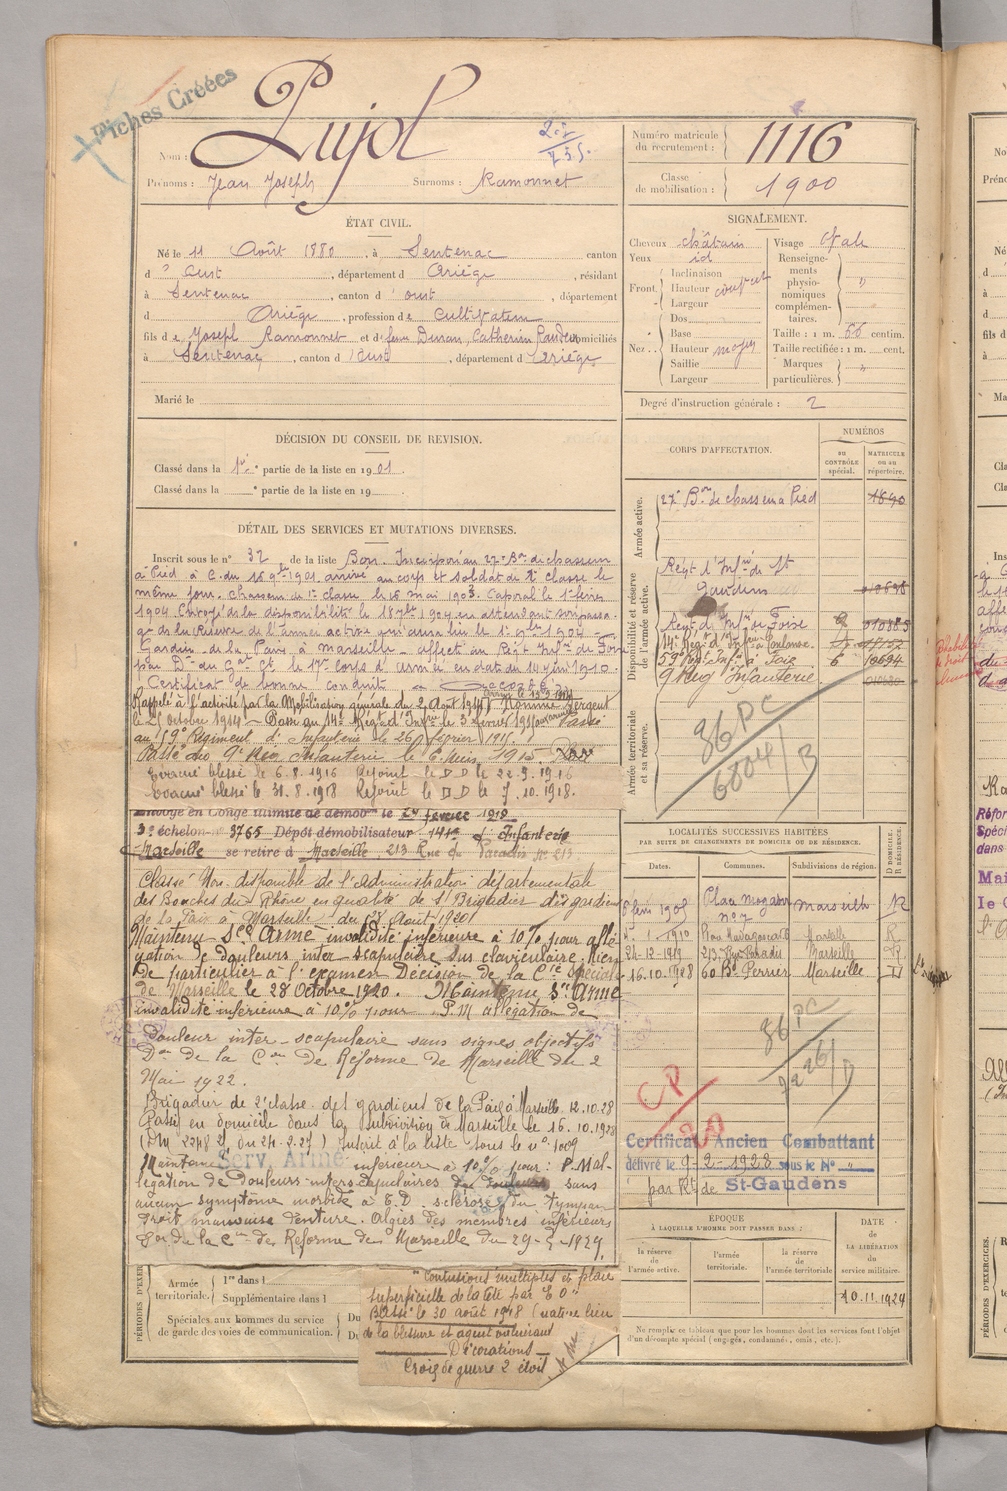 Fiches Créées
Nom : Pujol
Prénoms : Jean Joseph Surnoms : Ramonnet
Numéro matricule du recrutement : 1116
Classe de mobilisation : 1900
ÉTAT CIVIL.
Né le 11 Août 1880, à Sentenac canton
d' Oust, département d Ariège, résidant
à Sentenac, canton d' oust, département
d Ariège, profession de Cultivateur
fils de Joseph Ramonnet et d feue Catherin domiciliés
à Sentenac, canton d' Oust, département d' Ariège
Marié le
SIGNALEMENT.
Cheveux châtain
Yeux id
Front. Inclinaison
Hauteur
Largeur
Nez. Dos
Base
Hauteur moyen
Saillie
Largeur
Visage Ovale
Renseignements physionomiques complémentaires. "
Taille : 1 m. 66 centim.
Taille rectifiée : 1 m. cent.
Marques particulières. "
Degré d'instruction générale : 2
DÉCISION DU CONSEIL DE REVISION.
Classé dans la 1re partie de la liste en 1901.
Classé dans la e partie de la liste en 19
CORPS D'AFFECTATION.
NUMÉROS
AU CONTRÔLE spécial.
MATRICULE ou au répertoire.
Armée active.
27e Bon de chasseurs à Pied 1890
Disponibilité et réserve de l'armée active.
Régt d'Infrie de St Gaudens
Régt d'Infie de Foix
14e Régt d'Infrie Toulouse
59e Régt Infie à Foix 6 10694
9 Reg Infanterie
Armée territoriale et sa réserve.
36 PC
6804/B
DÉTAIL DES SERVICES ET MUTATIONS DIVERSES.
Inscrit sous le n° 32 de la liste Bon. Incorporé au 27e Bon de chasseurs
à Pied à C. du 15 9bre 1901, arrivé au corps et soldat de 2e classe le
même jour. Chasseur de 1e classe le 15 mai 1903. Caporal le 1er février
1904. Envoyé dans la disponibilité le 18 7bre 1904 en attendant son passa-
ge dans la Réserve de l'armée active qui aura lieu le 1er 9bre 1904.
Gardien de la Paix à Marseille affecté au Régt Infie de Foix
par Don du Gal Ct le 17e corps d'armée en date du 14 juin 1910.
Certificat de bonne conduite Accordé.
Rappelé à l'activité par la Mobilisation générale du 2 Août 1914 Nommé Sergent
le 25 octobre 1914. Passé au 14e Régt d'Infie le 3 février 1915. Passé
au 59e Régiment d'Infanterie le 26 février 1915.
Passé au 9e Reg Infanterie le 6 Mars 1915.
Evacué blessé le 6.8.1916 Rejoint le DD le 22.9.1916
Evacué blessé le 31.8.1918 Rejoint le DD le 7.10.1918.
Envoyé en Congé illimité de démob.
3e échelon n° 3765 Dépôt démobilisateur 141e d'Infanterie
Marseille se retire à Marseille, 213 Rue du Paradis N° 213
Classé Non-disponible de l'Administration départementale
des Bouches du Rhône en qualité de S/Brigadier des gardiens
de la Paix à Marseille du 1er Août 1920
Maintenu Sce Armé invalidité inférieure à 10% pour allé-
gation de douleurs inter scapulaire sus claviculaire. Rien
de particulier à l'examen Décision de la Cie Spéciale
de Marseille le 28 Octobre 1920. Maintenu Sce Armé
invalidité inférieure à 10% pour P.M allégation de
douleur inter-scapulaire sans signes objectifs
Don de la Con de Réforme de Marseille du 2
Mai 1922.
Brigadier de 2e classe des gardiens de la Paix à Marseille 12.10.28
Passé en domicile dans la subdivision de Marseille le 16.10.1928
Inscrit à la liste sous le n° 1009
Maintenu Serv. Armé inférieure à 10% pour : P. Mal-
légation de douleurs inter-scapulaires sans
aucun symptôme morbide à E.D. sclérose du tympan
droit mauvaise denture. Algies des membres inférieurs
Don de la Con de Réforme de Marseille du 29-5-1929.
LOCALITÉS SUCCESSIVES HABITÉES
PAR SUITE DE CHANGEMENTS DE DOMICILE OU DE RÉSIDENCE.
Dates. Communes. Subdivisions de région. D. DOMICILE. R. RÉSIDENCE.
Place n°7 Marseille R
1.1910 Rue Madagascar Marseille R
24-12-1919 213 Rue Paradis Marseille R
16.10.1928 60 Bd Perrier Marseille D
36 PC
CP
Certificat Ancien Combattant
délivré le 9-2-1928 sous le N° "
par Rt de St-Gaudens
ÉPOQUE
À LAQUELLE L'HOMME DOIT PASSER DANS :
la réserve de l'armée active.
l'armée territoriale.
la réserve de l'armée territoriale
DATE de LA LIBÉRATION du service militaire.
10.11.1929
Ne remplir ce tableau que pour les hommes dont les services font l'objet d'un décompte spécial (engagés, condamnés, omis, etc.).
PÉRIODES D'EXER
Armée territoriale. 1re dans l
Supplémentaire dans l
Spéciales aux hommes du service de garde des voies de communication. Du
Du
"contusions multiples et plaie
superficielle de la tête par E O"
Blessé le 30 août 1918 (nature lieu
de la blessure et agent vulnérant
Décorations
Croix de guerre 2 étoil